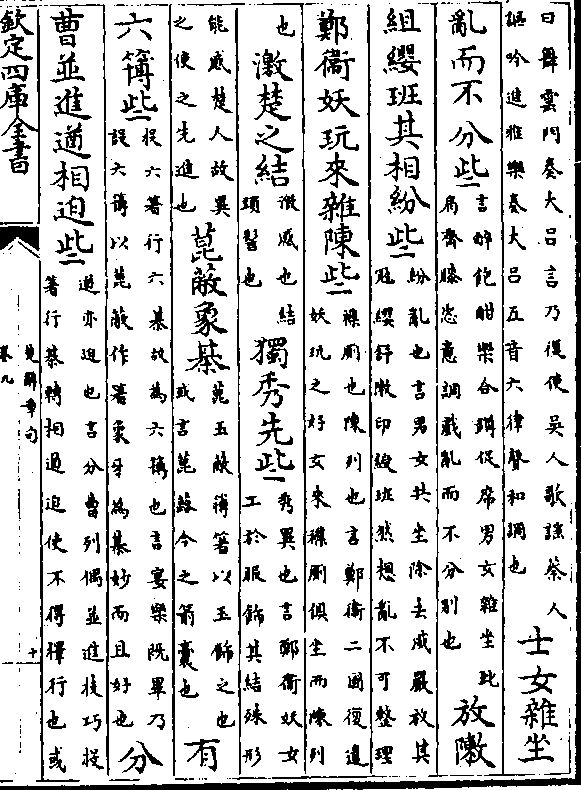 曰舞雲門奏大呂言乃復使吳人歌謡蔡人
謳吟進雅樂奏大呂五音六律聲和調也
士女雜坐
亂而不分些
言醉飽酣樂合罇促席男女雜坐比
肩齊膝恣意調戲亂而不分別也
放敶
組纓班其相紛些
紛亂也言男女共坐除去威嚴放其
冠纓舒敶印綬班然相亂不可整理
鄭衞妖玩來雜陳些
襍厠也陳列也言鄭衛二國復遺
妖玩之好女來襍厠俱坐而陳列
也
激楚之結
激感也結
頭髻也
獨秀先些
秀異也言鄭衛妖女
工於服飾其結殊形
能感楚人故異
之使之先進也
菎蔽象棊
菎玉蔽簙箸以玉飾之也
或言菎蕗今之箭囊也
有
六簙些
投六箸行六棊故為六簙也言宴樂既畢乃
設六簙以菎蔽作箸象牙為棊妙而且好也
分
曹並進遒相迫些
遒亦迫也言分曹列偶並進技巧投
箸行棊轉相遒迫使不得擇行也或
欽定四庫全書
楚辭章句
卷九
十